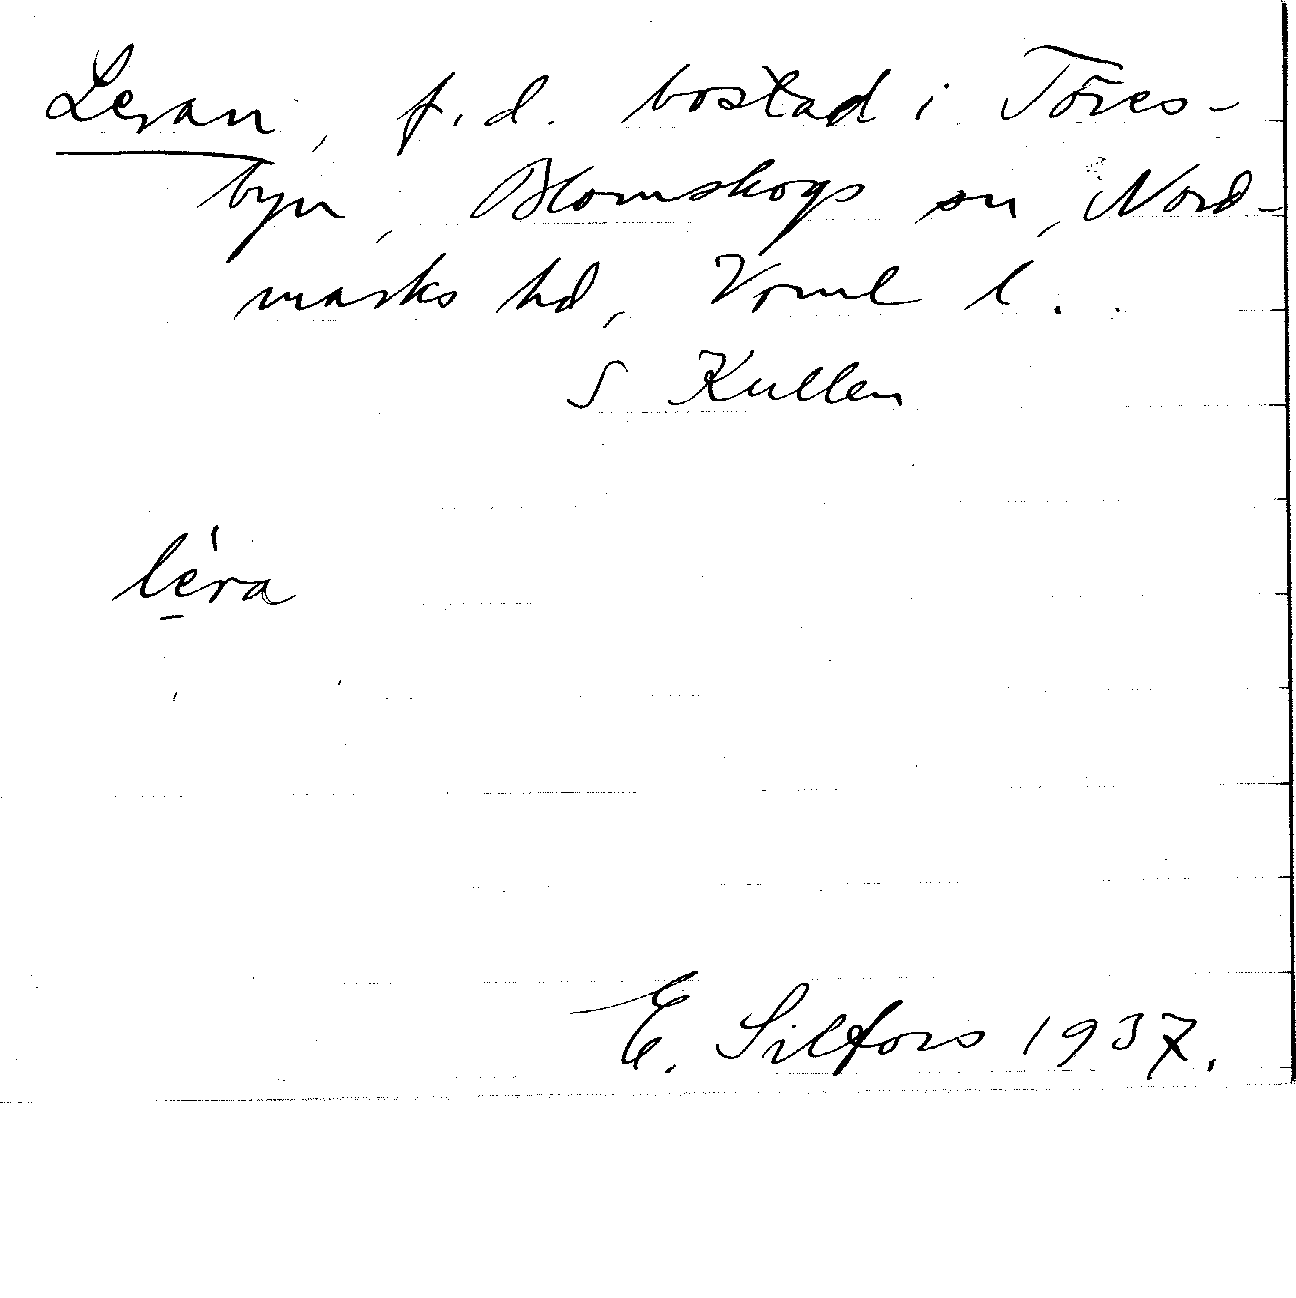 Leran, f.d. bostad i Töres-
byn, Blomskogs sn, Nord-
marks hd, Vrml l.
S Kullen
le̠'ra
E. Silfors 1937.